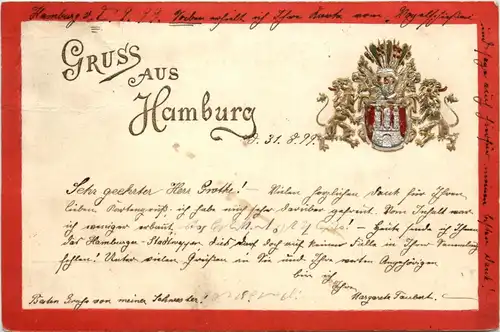 Hamburg d. 2. 9. 99. Soeben erhielt ich Ihre Karte vom
GRUSS
AUS
Hamburg
d. 31. 8. 99.
Sehr geehrter Herr Grothe! – Vielen herzlichen Dank für Ihren
lieben Kartengruß, ich habe mich sehr darüber gefreut. Vom Inhalt war
ich weniger erbaut, – Heute sende ich Ihnen
das Hamburger Stadtwappen, dies darf doch auf keinen Fall in Ihrer Sammlung
fehlen! Unter vielen Grüßen an Sie und Ihre werten Angehörigen
bin ich
Ihre
Margarete Taubert.
Besten Gruß von meiner Schwester!